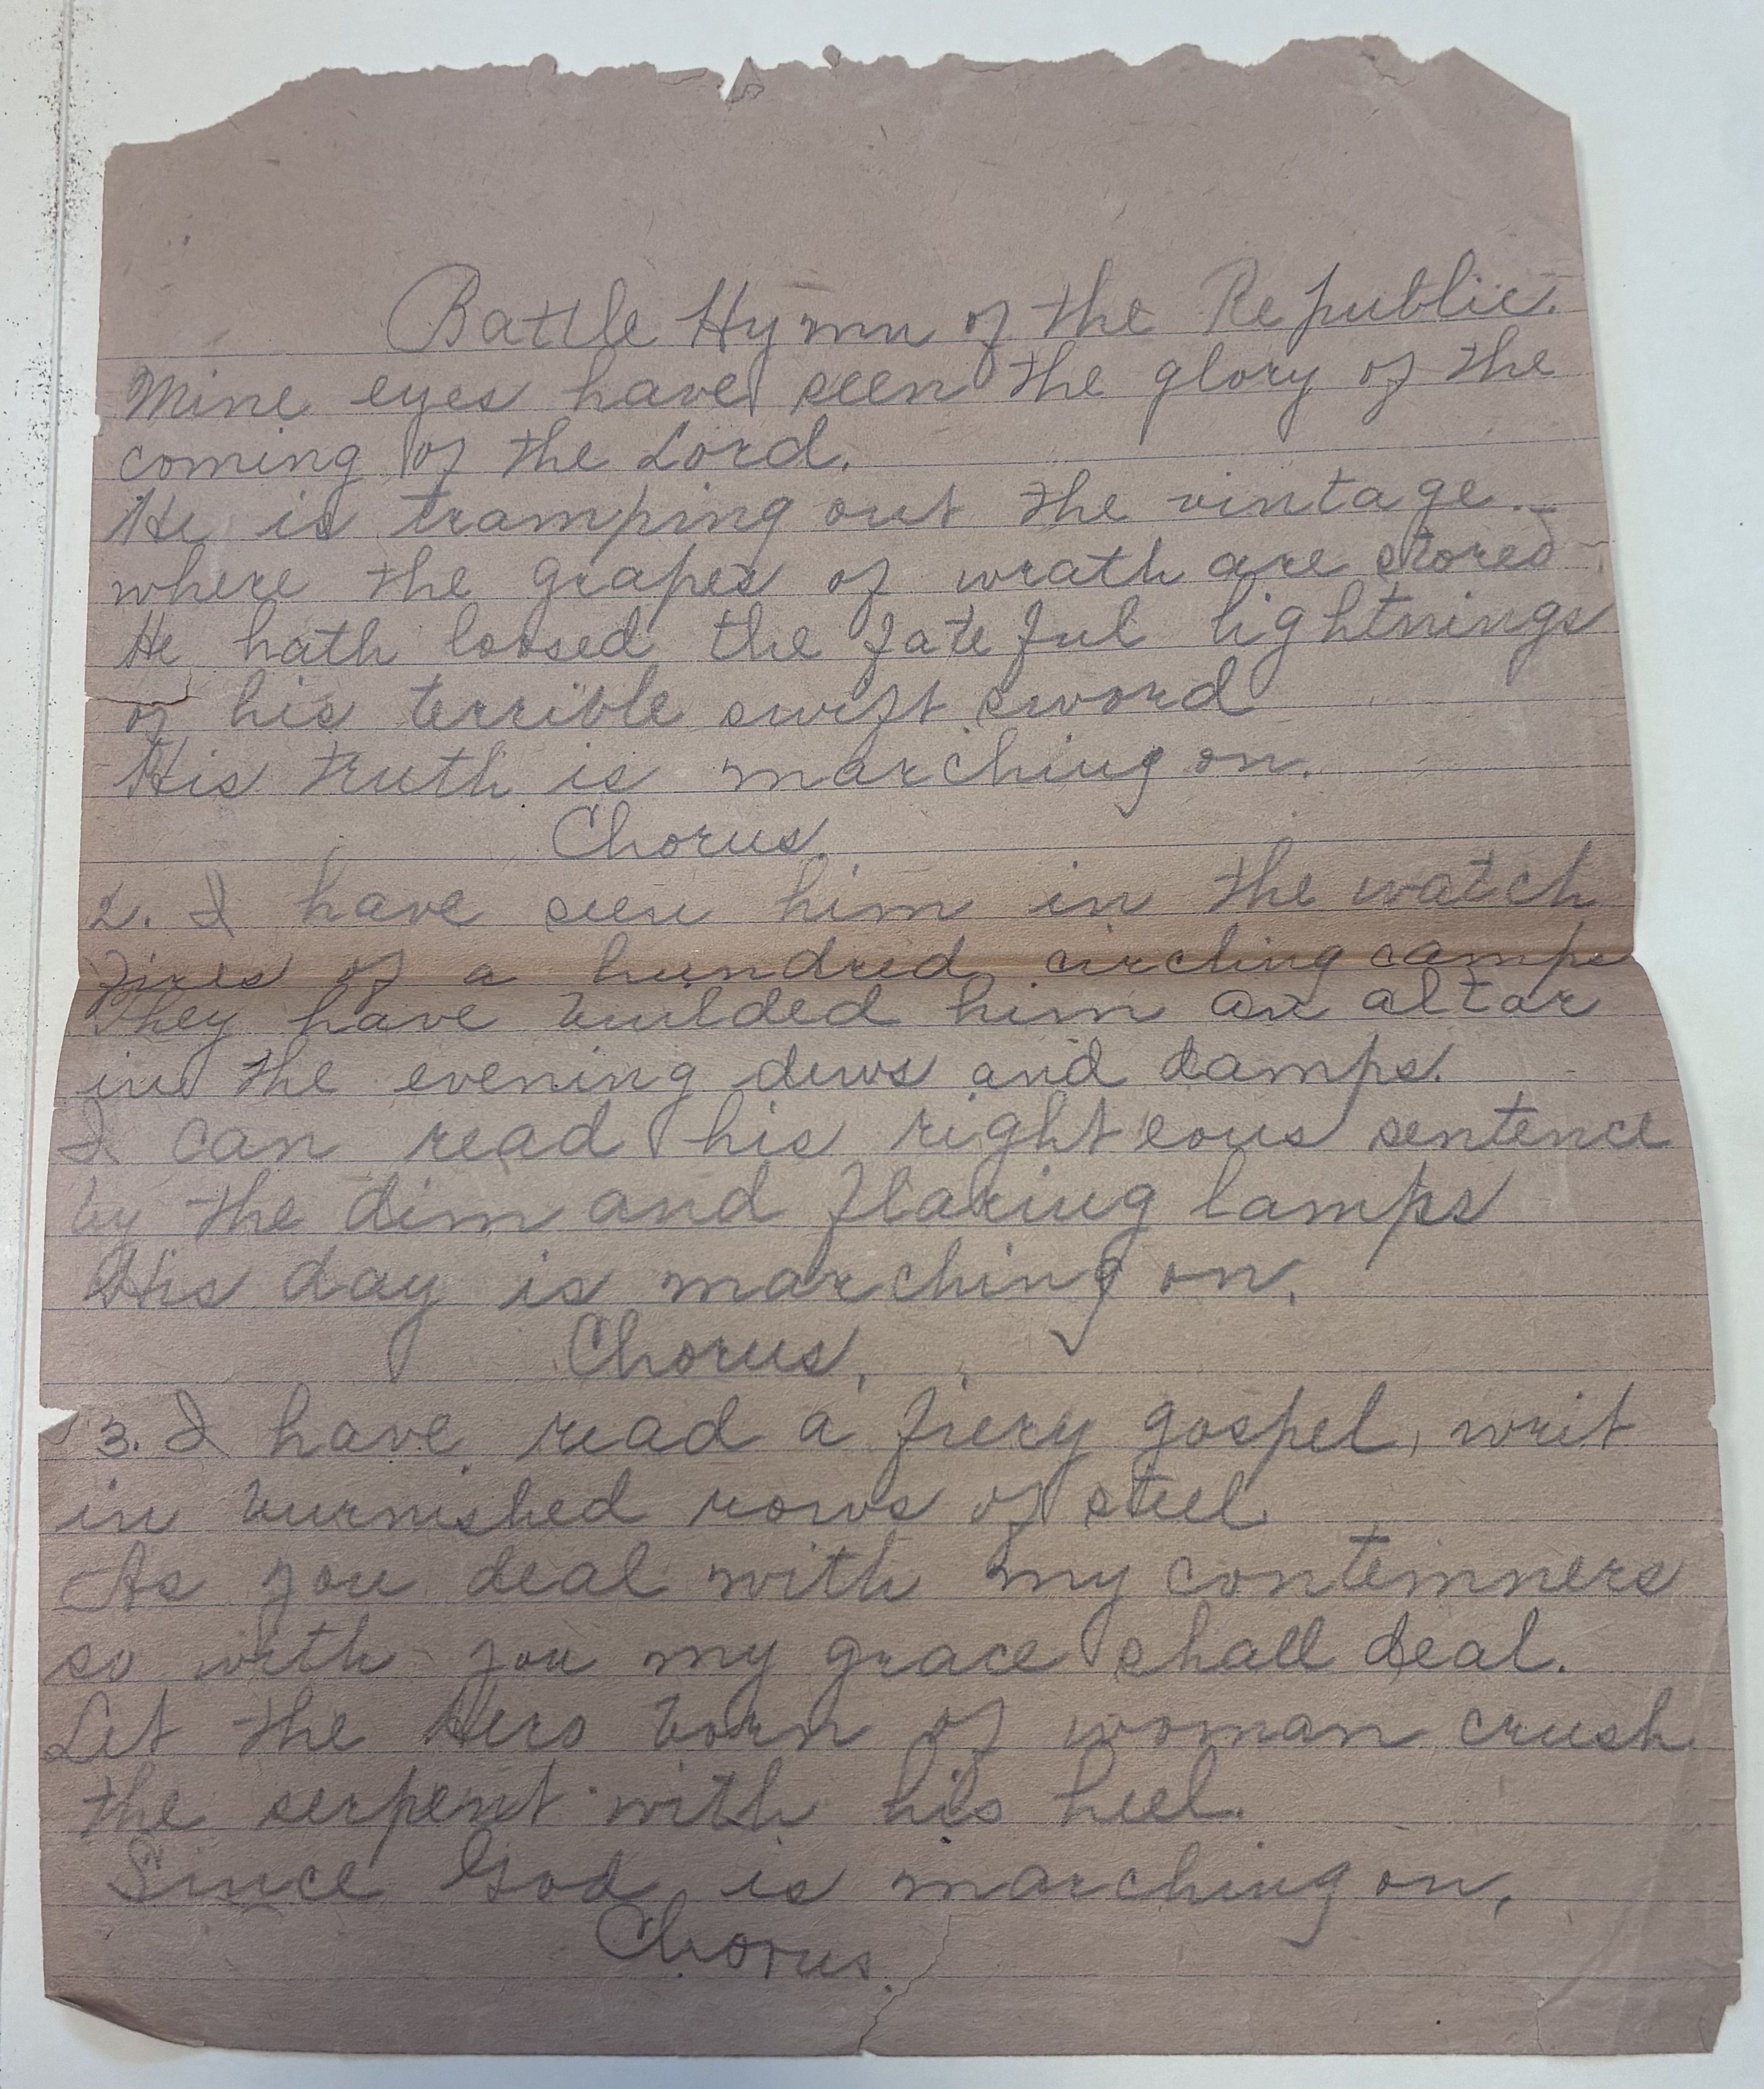 Battle Hymn of the Republic.
Mine eyes have seen the glory of the
coming of the Lord.
He is tramping out the vintage
where the grapes of wrath are stored
He hath loosed the fateful lightnings
of his terrible swift sword
His truth is marching on.
Chorus
2. I have seen him in the watch
fires of a hundred circling camps
They have builded him an altar
in the evening dews and damps.
I can read his righteous sentence
by the dim and flaring lamps
His day is marching on.
Chorus.
3. I have read a fiery gospel, writ
in burnished rows of steel
As you deal with my contemners
so with you my grace shall deal.
Let the Hero born of woman crush
the serpent with his heel.
Since God is marching on,
Chorus.